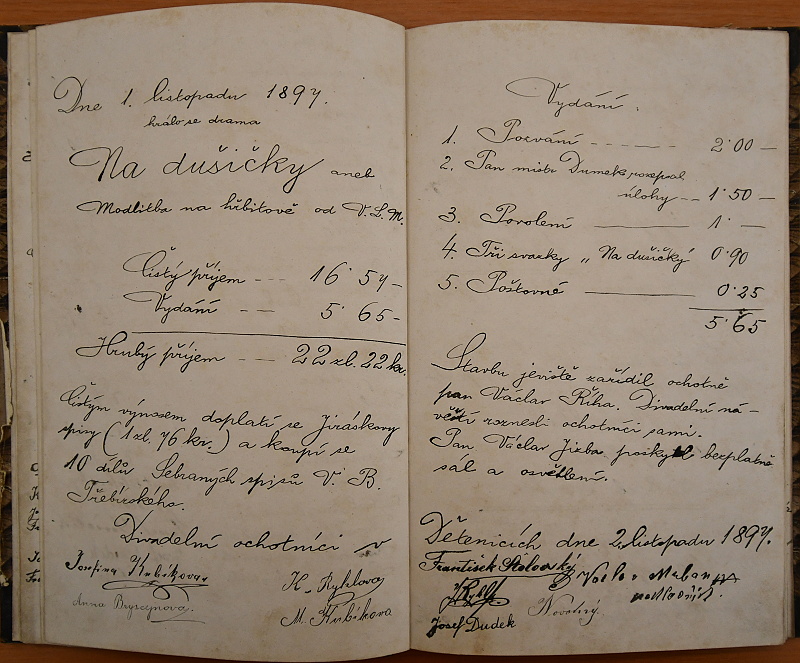 Dne 1. listopadu 1897.
hrálo se drama
Na dušičky aneb
Modlitba na hřbitově od V. L. M.
Čistý příjem --- 16˙57-
Vydání --- 5˙65-
Hrubý příjem --- 22 zl. 22 kr.
Čistým výnosem doplatí se Jiráskovy
spisy (1 zl. 76 kr.) a koupí se
10 dílů Sebraných spisů V. B.
Třebízského.
Divadelní ochotníci v
Josefina Kubíkova
Anna
K. Rychlova
M. Kubíkova
Vydání.
1. Pozvání ------ 2˙00 —
2. Pan mistr Dumek rozepsal
úlohy -- 1˙50 —
3. Povolení ——— 1˙ —
4. Tři svazky „Na dušičky" 0˙90
5. Poštovné ——— 0˙25
5˙65
Stavbu jeviště zařídil ochotně
pan Václav Říha. Divadelní ná-
věští roznesli ochotníci sami.
Pan Václav Jizba poskytl bezplatně
sál a osvětlení.
Dětenicích dne 2. listopadu 1897.
František
Novotný.
Josef Dudek